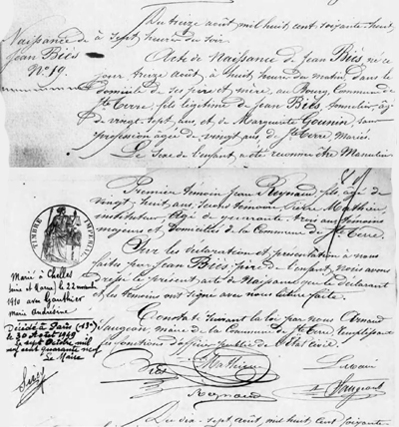 Du treize août mil huit cent soixante-huit,
à sept heures du soir.
Naissance de
Jean Biès
N° 19.
Acte de Naissance de Jean Biès né ce
jour treize août à huit heures du matin dans le
domicile de ses père et mère, au Bourg, Commune de
Ste Terre, fils légitime de Jean Biès, menuisier, âgé
de vingt-sept ans, et de Marguerite Gounin, sans
profession âgée de vingt ans de Ste Terre Mariés.
Le sexe de l'enfant a été reconnu être Masculin
Premier témoin Jean Reynaud, âgé de
vingt-huit ans, Second témoin, Pierre Mathieu,
instituteur, âgé de quarante-trois ans témoins
majeurs et domiciliés de la Commune de Ste Terre.
TIMBRE IMPÉRIAL
Sur les déclaration et présentation à nous
faites par Jean Biès, père de l'enfant, nous avons
dressé le présent acte de Naissance que le déclarant
et les témoins ont signé avec nous lecture faite.
Marié à Chelles
(Seine et Marne) le 22
1910 avec Gauthier
Marie
Décédé à Paris (13e)
le 30 Août 1949
Le sept Octobre mil
neuf cent quarante neuf
Le Maire
Constaté suivant la loi par nous Arnaud
Saugeon, maire de la Commune de Ste Terre, remplissant
les fonctions d'officier public de l'état civil.
Biès Mathieu
Reynaud
Du dix-sept août, mil huit cent soixante